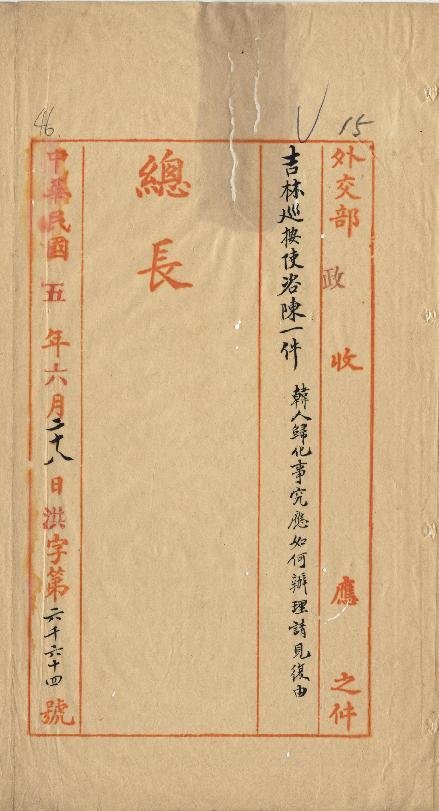 15
46
外交部 政 收 應 之件
吉林巡按使咨陳一件 韓人歸化事究應如何辦理請見復由
總長
中華民國五年六月二十八日洪字第六千六十四號